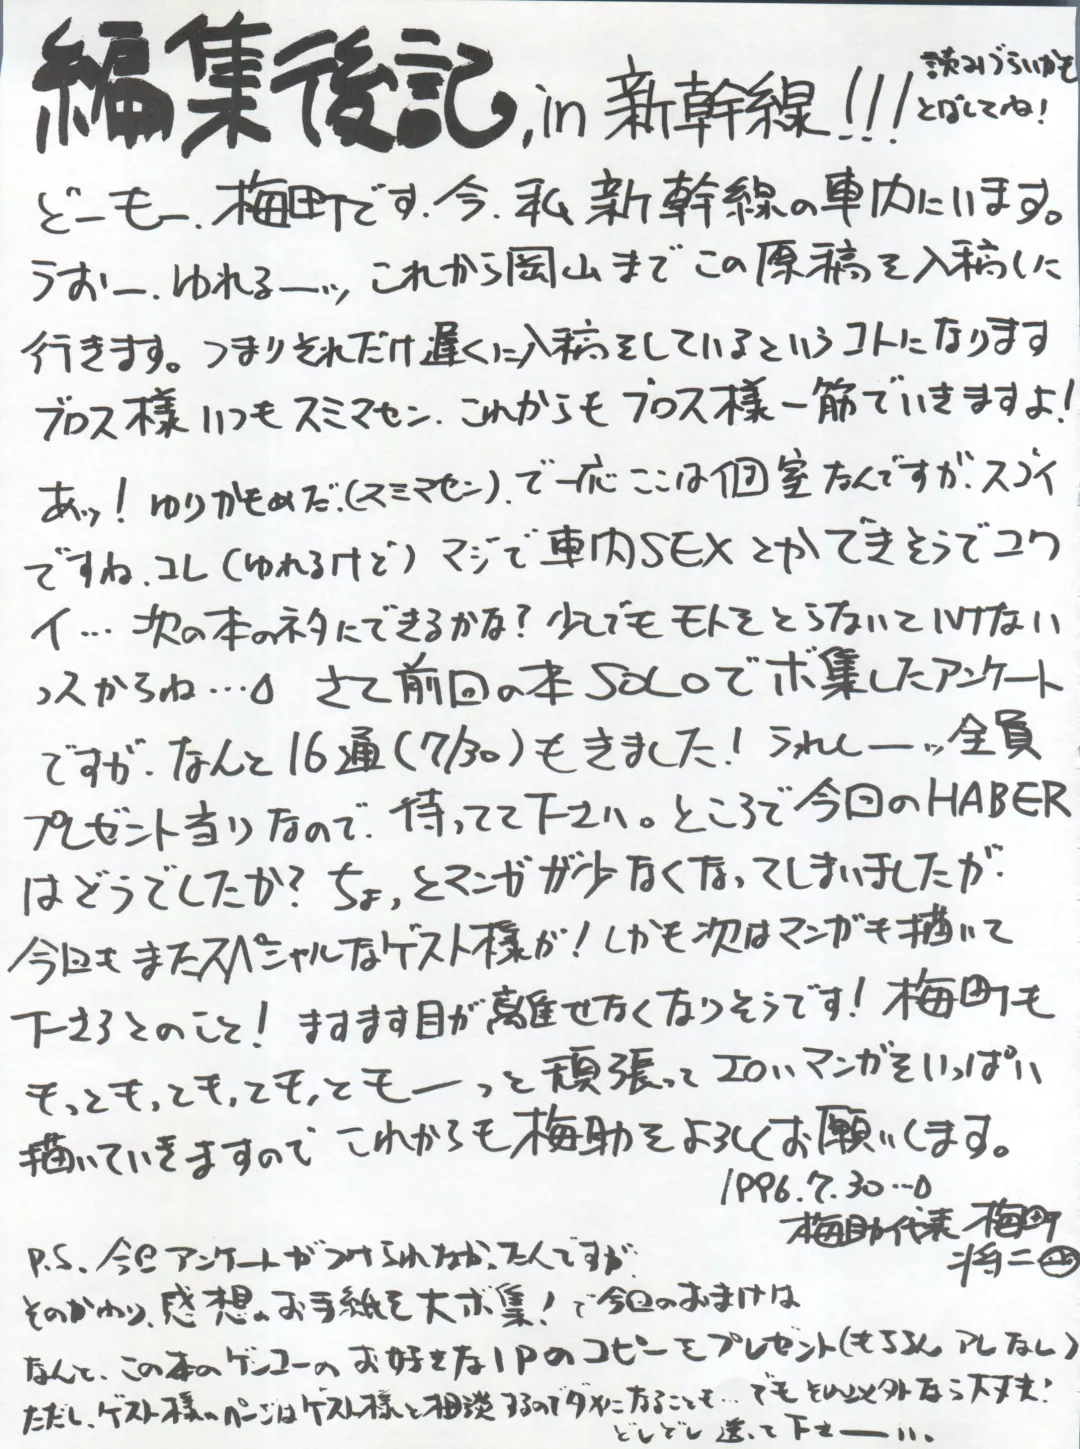 編集後記, in 新幹線!!!
読みづらいかも
とばしてね!
どーもー、梅町です。今、私新幹線の車内にいます。
うおー、ゆれるーッ これから岡山までこの原稿を入稿しに
行きます。つまりそれだけ遅くに入稿をしているというコトになります
ブロス様いつもスミマセン、これからもブロス様一筋でいきますよ!
あッ! ゆりかもめだ、(スミマセン)、で一応ここは個室なんですが、スゴイ
ですね、コレ(ゆれるけど) マジで車内SEXとかできそうでコワ
イ… 次の本のネタにできるかな? 少しでもモトをとらないといけない
っスからね… さて前回の本SOLOでボ集したアンケート
ですが、なんと16通(7/30)もきました! うれしーッ 全員
プレゼント当りなので、待ってて下さい。ところで今回のHABER
はどうでしたか? ちょっとマンガが少なくなってしまいましたが、
今回もまたスペシャルなゲスト様が! しかも次はマンガも描いて
下さるとのこと! ますます目が離せなくなりそうです! 梅町も
もっとも,っとも,ても,ともーっと頑張ってエロいマンガをいっぱい
描いていきますので これからも梅助をよろしくお願いします。
1996.7.30…
梅助代表 梅町
将二
P.S、今回アンケートがつけられなかったんですが、
そのかわり、感想のお手紙を大ボ集! で今回のおまけは
なんと、この本のゲンコーのお好きな1Pのコピーをプレゼント(もちろんアレなし)
ただし、ゲスト様のページはゲスト様と相談するのでダメになることも… でもそれ以外なら大丈夫!
どしどし送って下さーい、